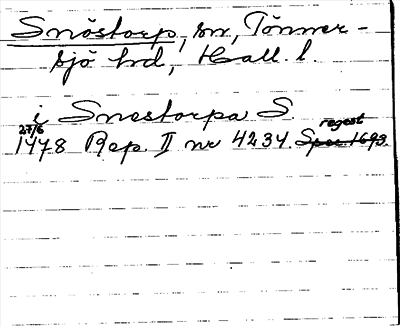 Snöstorp, sn, Tönner-
sjö hd, Hall. l.
i Snestorpa S
27/6 regest
1478 Rep. II nr 4234. Spec 1693.